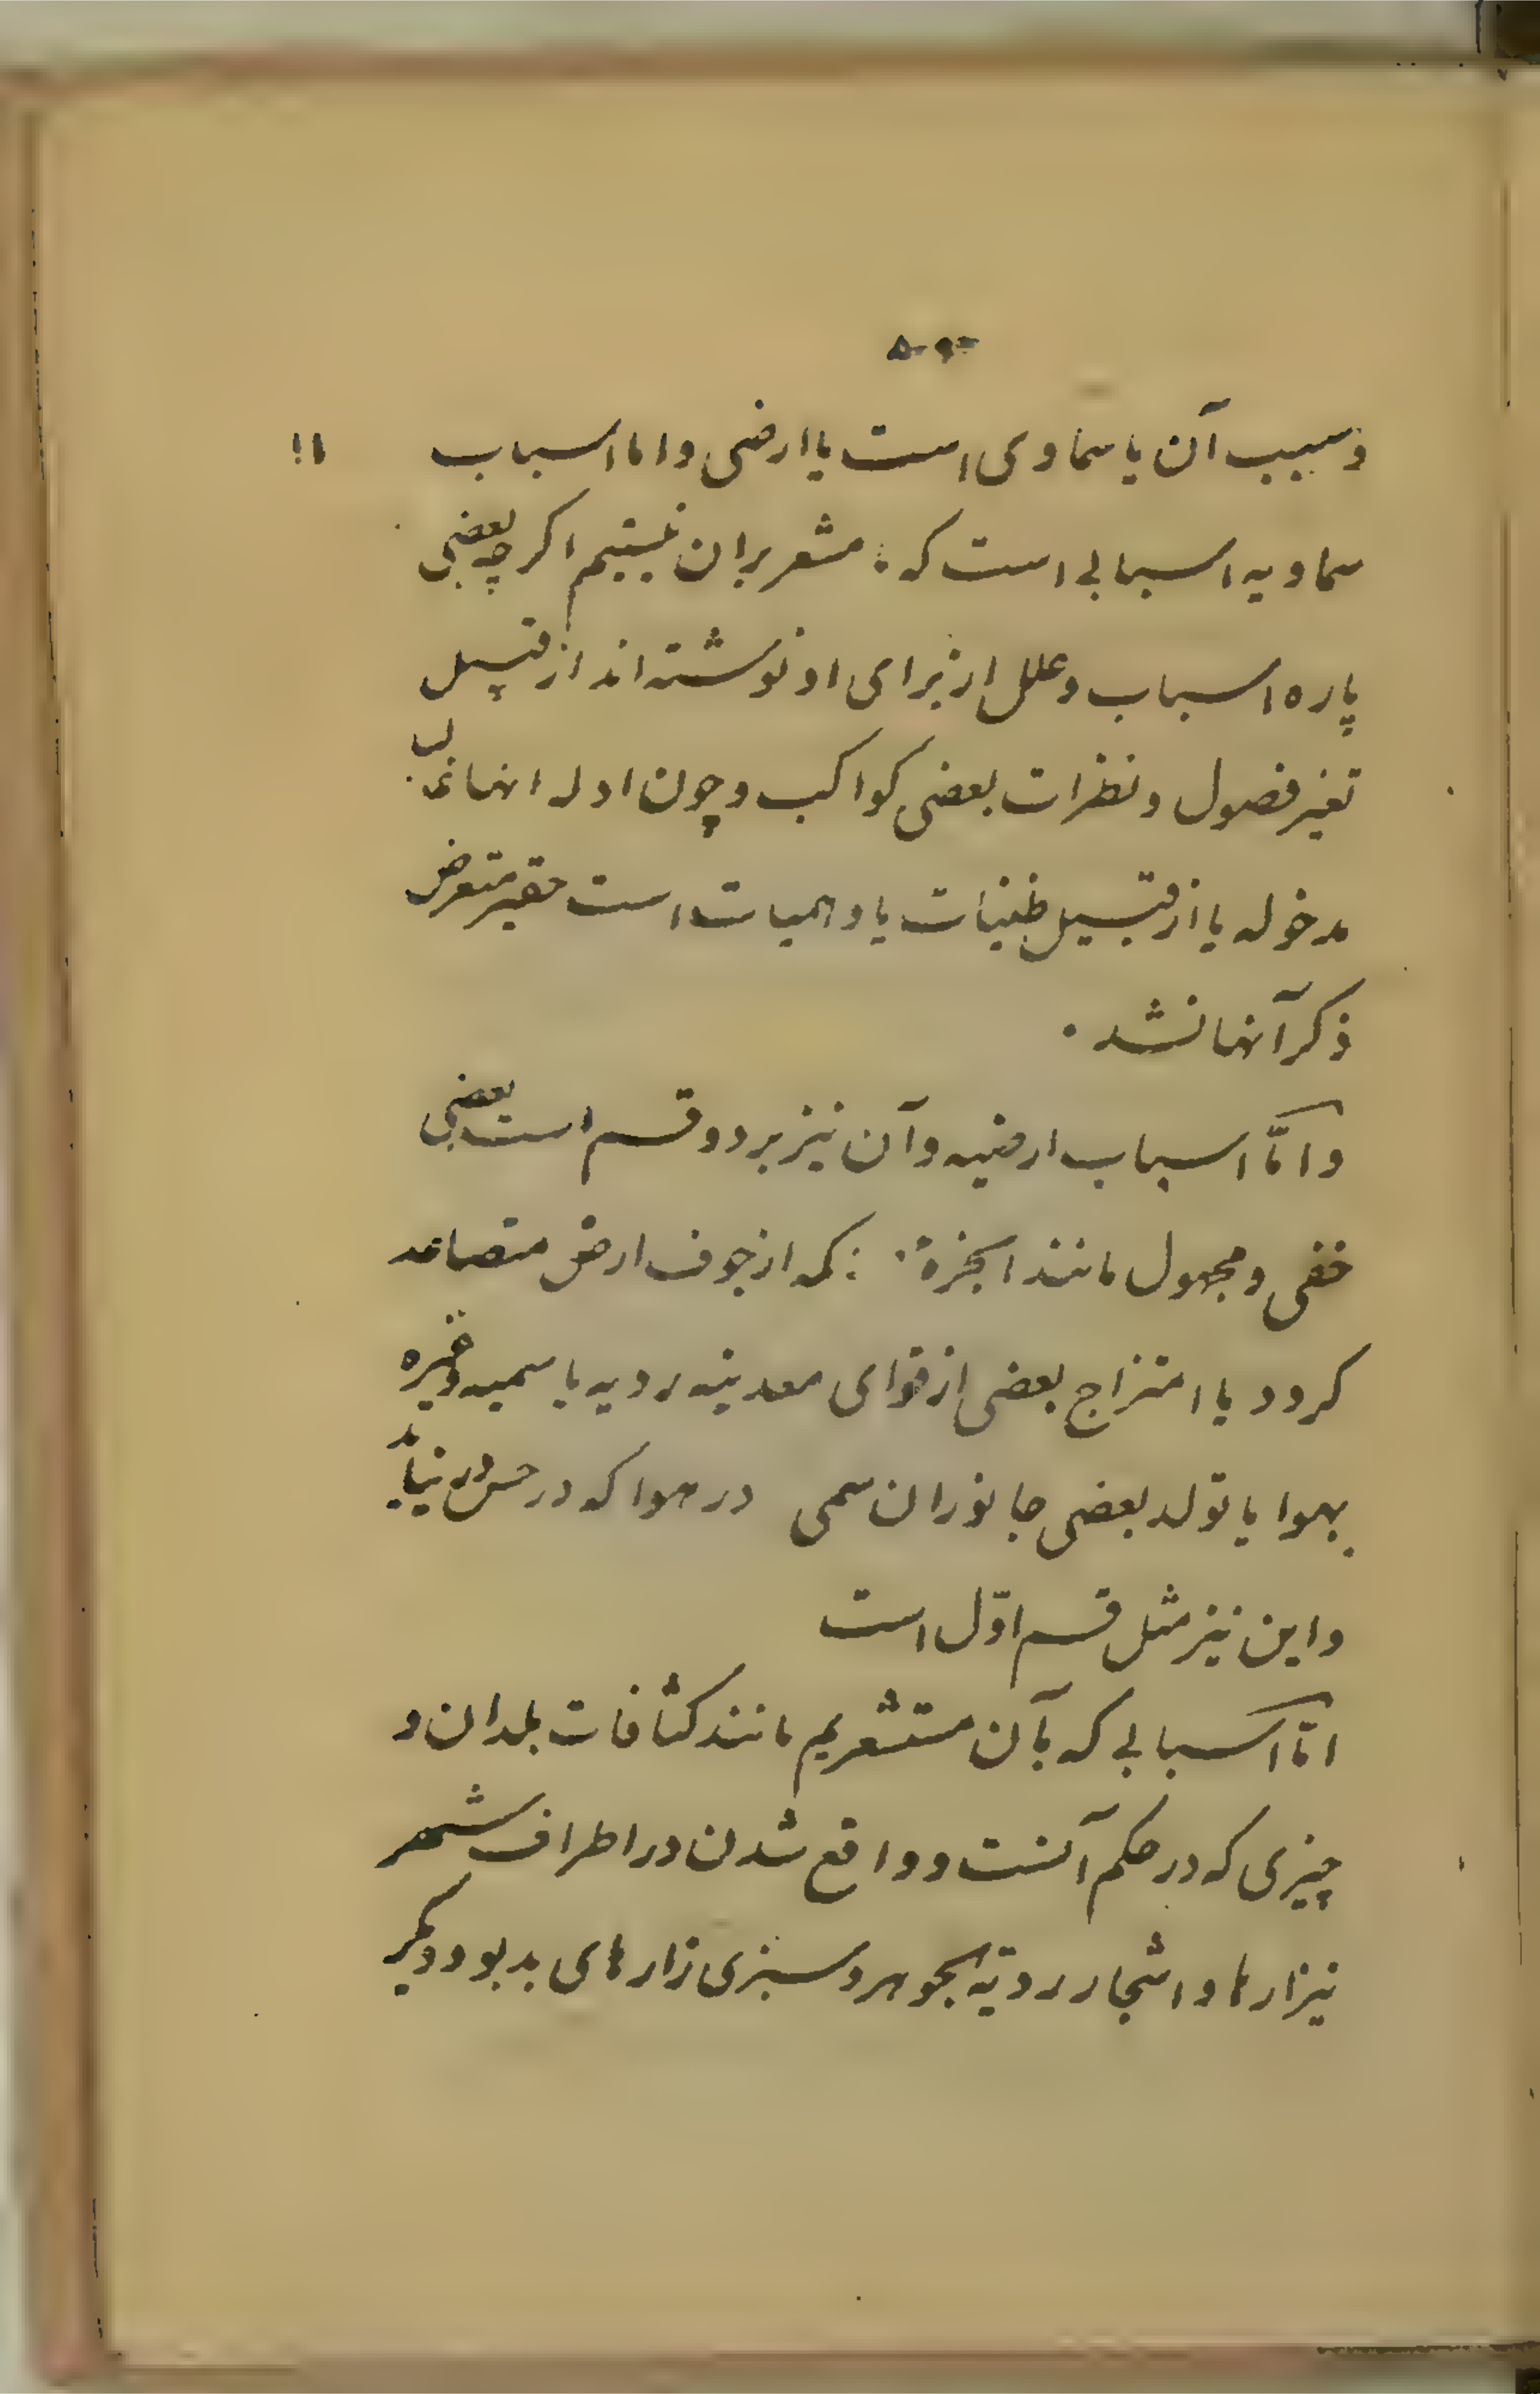 وسبب آن یا سماوی است یا ارضی و اما اسباب
سماویه اسبابی است که مشعر بران نیستیم اگر چه بعضی
پاره اسباب و علل از برای او نوشته‌اند از قبیل
تغیر فصول و نظرات بعضی کواکب و چون ادله انها غالب
مدخوله یا از قبیل ظنیات یا وهمیات است حقیر متعرض
ذکر آنها نشد ۰
و امّا اسباب ارضیه و آن نیز بر دو قسم است بعضی
خفی و مجهول مانند ابخرهٔ که از جوف ارض متصاعد
کردد یا امتزاج بعضی از قوای معدنیه ردیه یا سمیه وغیره
بهوا یا تولد بعضی جانوران سمی در هوا که در حس در نیاید
و این نیز مثل قسم اوّل است
امّا اسبابی که بآن مستشعریم مانند کثافات بلدان و
چیزی که در حکم آنست و واقع شدن در اطراف شهر
نیزارها و اشجار ردیّة الجوهر و سبزی زارهای بدبو و دیگر